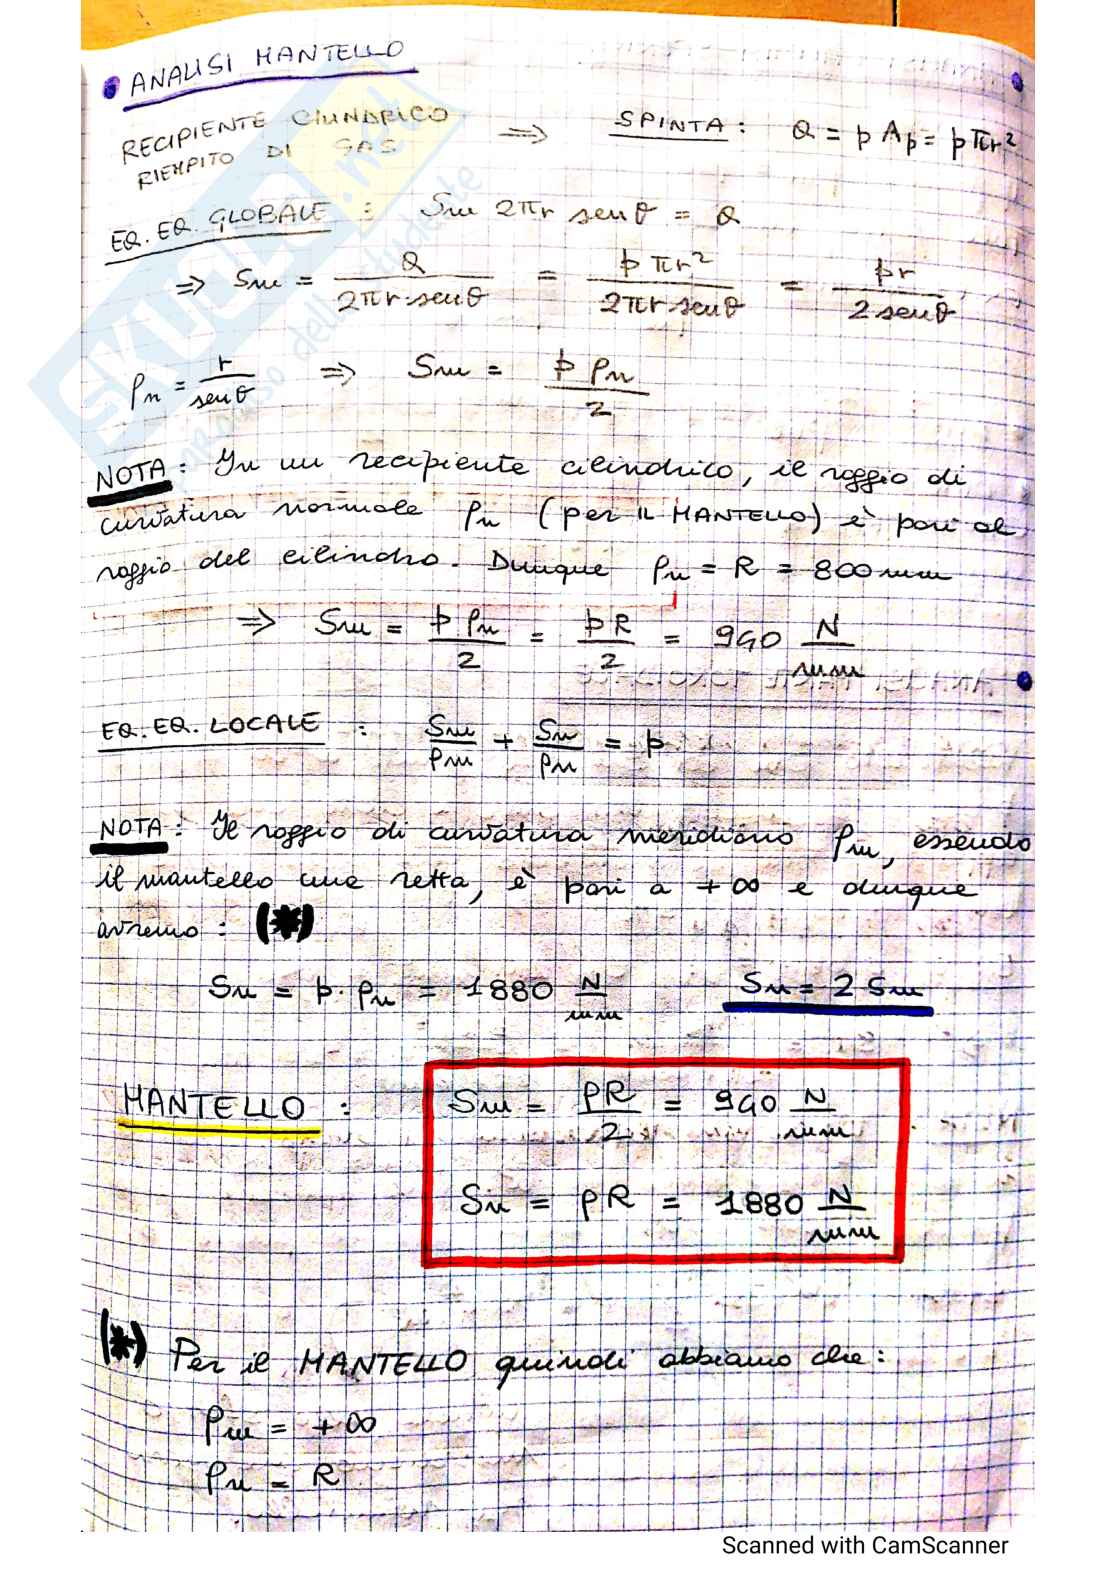 ANALISI MANTELLO
RECIPIENTE CILINDRICO RIEMPITO DI GAS ⇒ SPINTA : Q = p Ap = p πr²
EQ. EQ. GLOBALE : Sm 2πr senθ = Q
⇒ Sm = Q / 2πr·senθ = p πr² / 2πr·senθ = pr / 2 senθ
ρn = r / senθ ⇒ Sm = p ρn / 2
NOTA : In un recipiente cilindrico, il raggio di
curvatura normale ρn (per IL MANTELLO) è pari al
raggio del cilindro. Dunque ρn = R = 800 mm
⇒ Sm = p ρn / 2 = p R / 2 = 940 N / mm
EQ. EQ. LOCALE : Sm / ρm + Sn / ρn = p
NOTA : Il raggio di curvatura meridiano ρm, essendo
il mantello una retta, è pari a +∞ e dunque
avremo : (*)
Sn = p · ρn = 1880 N / mm Sn = 2 Sm
MANTELLO : Sm = pR / 2 = 940 N / mm
Sn = pR = 1880 N / mm
(*) Per il MANTELLO quindi abbiamo che :
ρm = +∞
ρn = R
SKUOLA.net
Scanned with CamScanner